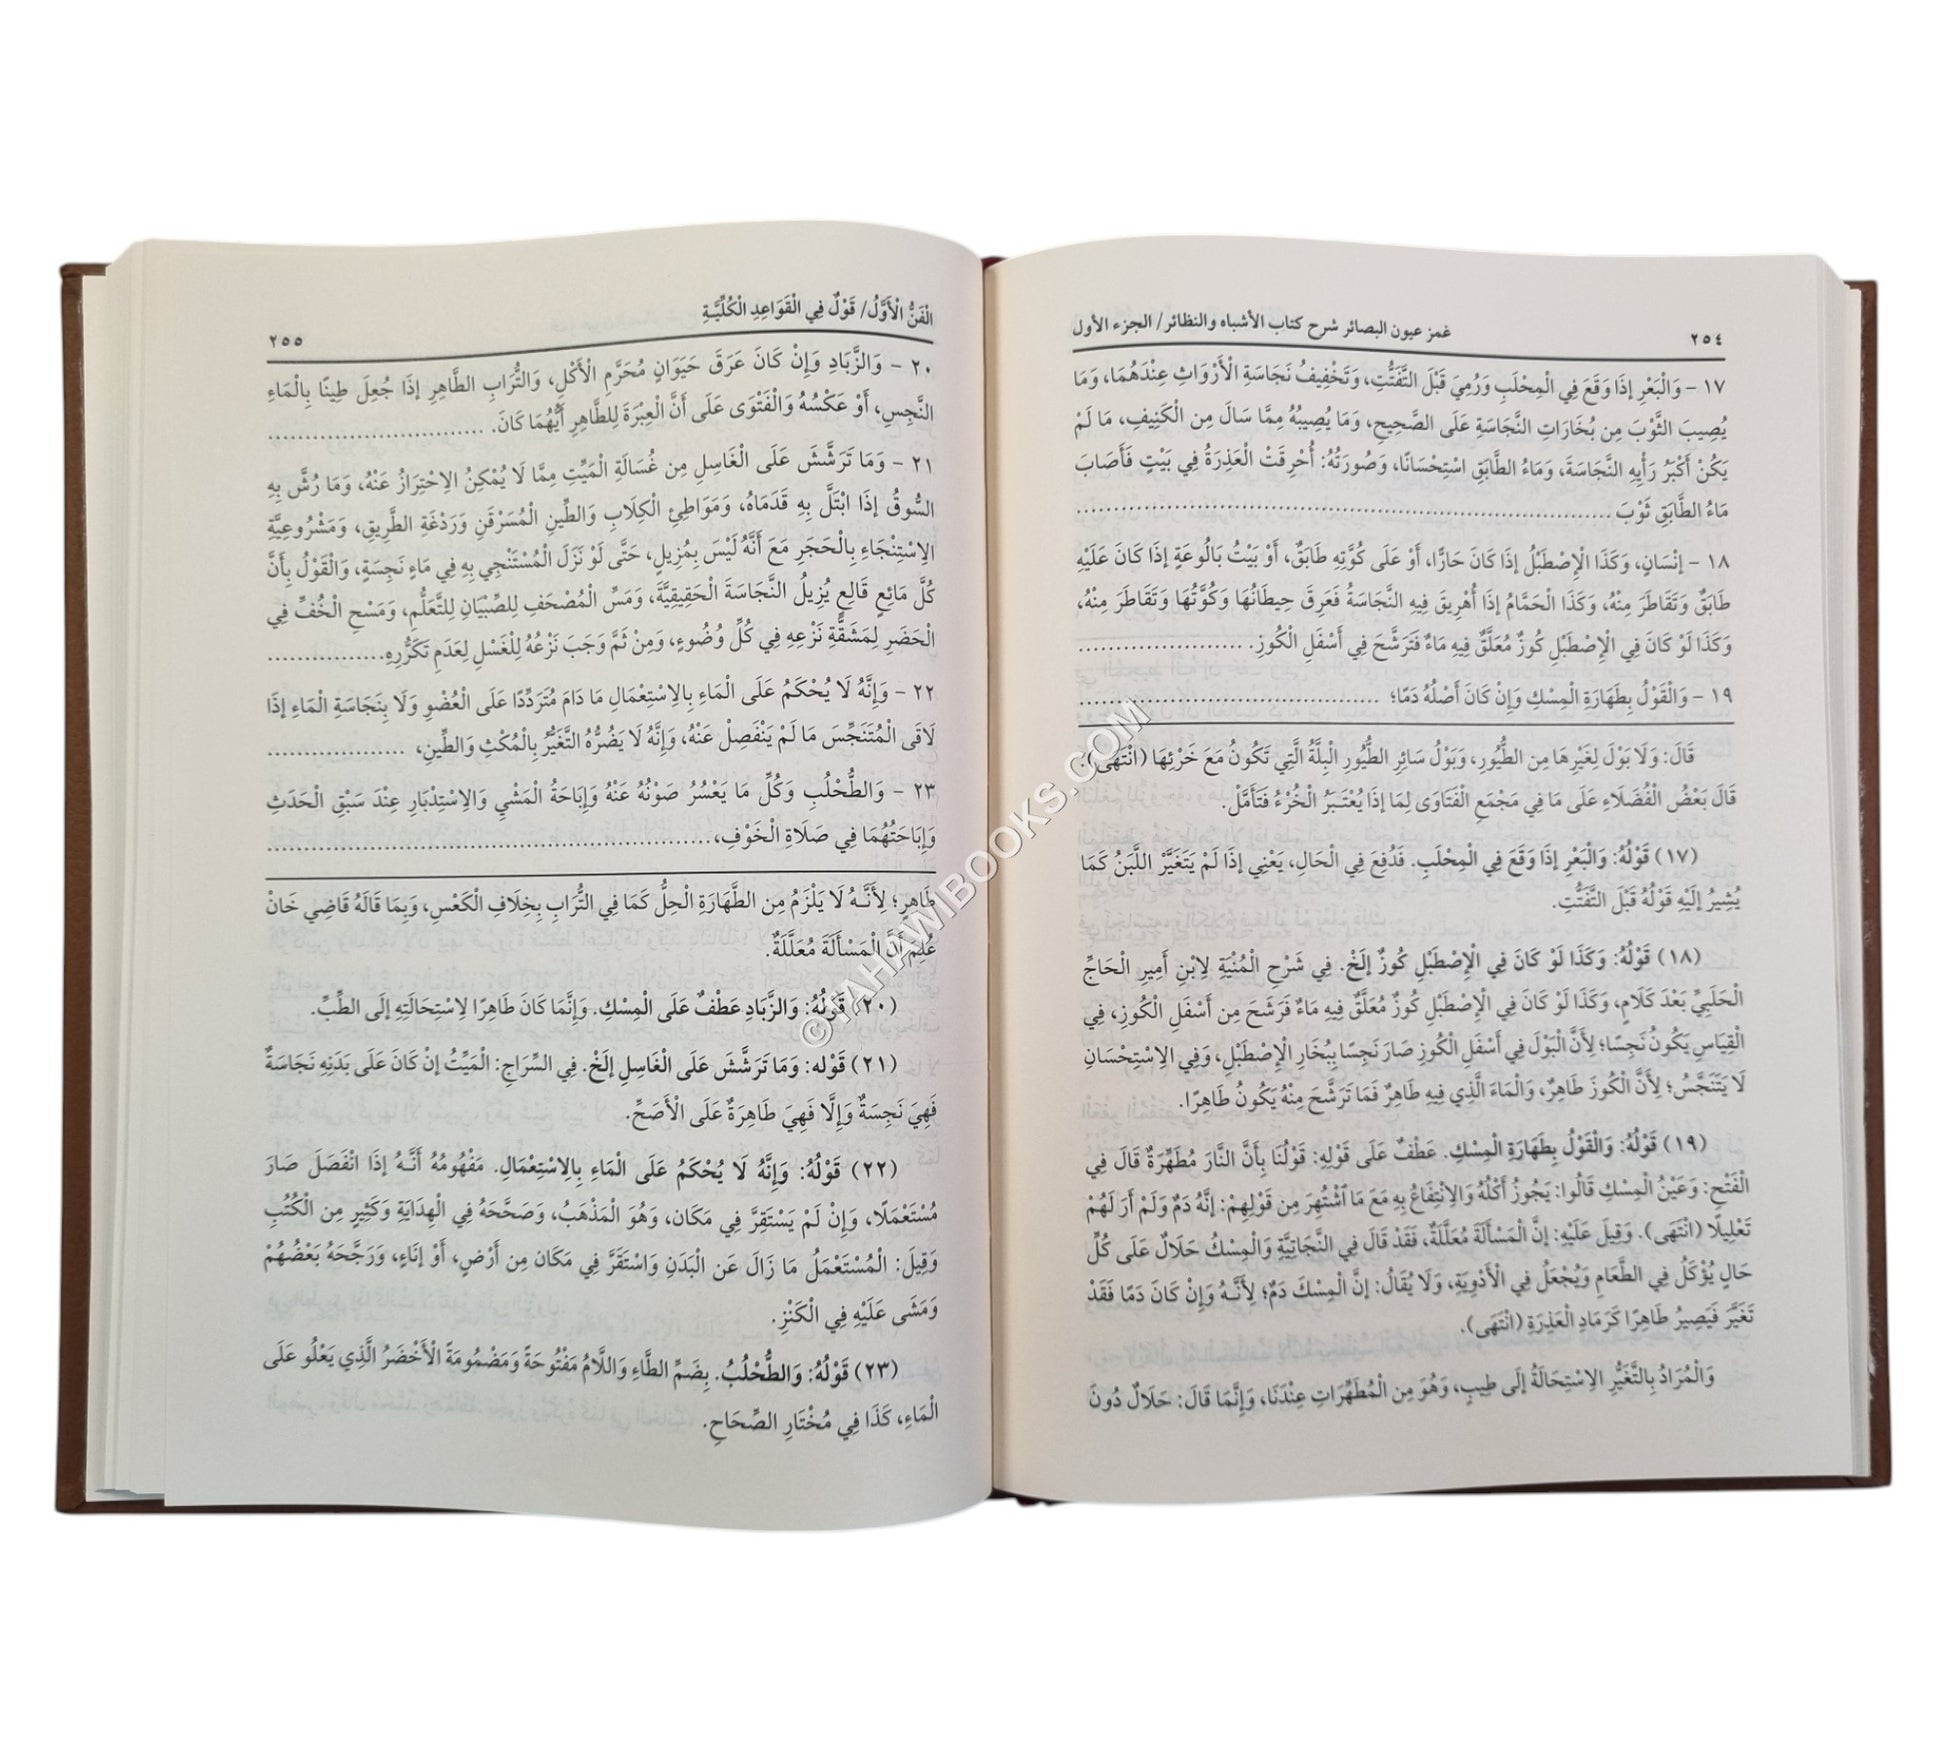 ٢٥٤ غمز عيون البصائر شرح كتاب الأشباه والنظائر/ الجزء الأول
١٧ – وَالْبَعْرِ إذَا وَقَعَ فِي الْمِحْلَبِ وَرُمِيَ قَبْلَ التَّفَتُّتِ، وَتَخْفِيفُ نَجَاسَةِ الْأَرْوَاثِ عِنْدَهُمَا، وَمَا
يُصِيبُ الثَّوْبَ مِن بُخَارَاتِ النَّجَاسَةِ عَلَى الصَّحِيحِ، وَمَا يُصِيبُهُ مِمَّا سَالَ مِن الْكَنِيفِ، مَا لَمْ
يَكُنْ أَكْبَرُ رَأْيِهِ النَّجَاسَةَ، وَمَاءُ الطَّابَقِ اسْتِحْسَانًا، وَصُورَتُهُ: أُحْرِقَتْ الْعَذِرَةُ فِي بَيْتٍ فَأَصَابَ
مَاءُ الطَّابَقِ ثَوْبَ ..............................
١٨ – إنْسَانٍ، وَكَذَا الْإِصْطَبْلُ إذَا كَانَ حَارًّا، أَوْ عَلَى كُوَّتِهِ طَابَقٌ، أَوْ بَيْتُ بَالُوعَةٍ إذَا كَانَ عَلَيْهِ
طَابَقٌ وَتَقَاطَرَ مِنْهُ، وَكَذَا الْحَمَّامُ إذَا أُهْرِيقَ فِيهِ النَّجَاسَةُ فَعَرِقَ حِيطَانُهَا وَكُوَّتُهَا وَتَقَاطَرَ مِنْهُ،
وَكَذَا لَوْ كَانَ فِي الْإِصْطَبْلِ كُوزٌ مُعَلَّقٌ فِيهِ مَاءٌ فَتَرَشَّحَ فِي أَسْفَلِ الْكُوزِ. ......................
١٩ – وَالْقَوْلُ بِطَهَارَةِ الْمِسْكِ وَإِنْ كَانَ أَصْلُهُ دَمًا؛ ..............................
قَالَ: وَلَا بَوْلَ لِغَيْرِهَا مِن الطُّيُورِ، وَبَوْلُ سَائِرِ الطُّيُورِ الْبِلَّةُ الَّتِي تَكُونُ مَعَ خَرْئِهَا (انْتَهَى).
قَالَ بَعْضُ الْفُضَلَاءِ عَلَى مَا فِي مَجْمَعِ الْفَتَاوَى لِمَا إذَا يُعْتَبَرُ الْخُرْءُ فَتَأَمَّلْ.
(١٧) قَوْلُهُ: وَالْبَعْرِ إذَا وَقَعَ فِي الْمِحْلَبِ. فَدُفِعَ فِي الْحَالِ، يَعْنِي إذَا لَمْ يَتَغَيَّرْ اللَّبَنُ كَمَا
يُشِيرُ إلَيْهِ قَوْلُهُ قَبْلَ التَّفَتُّتِ.
(١٨) قَوْلُهُ: وَكَذَا لَوْ كَانَ فِي الْإِصْطَبْلِ كُوزٌ إلَخْ. فِي شَرْحِ الْمُنْيَةِ لِابْنِ أَمِيرِ الْحَاجِّ
الْحَلَبِيِّ بَعْدَ كَلَامٍ، وَكَذَا لَوْ كَانَ فِي الْإِصْطَبْلِ كُوزٌ مُعَلَّقٌ فِيهِ مَاءٌ فَرَشَحَ مِن أَسْفَلِ الْكُوزِ، فِي
الْقِيَاسِ يَكُونُ نَجِسًا؛ لِأَنَّ الْبَوْلَ فِي أَسْفَلِ الْكُوزِ صَارَ نَجِسًا بِبُخَارِ الْإِصْطَبْلِ، وَفِي الِاسْتِحْسَانِ
لَا يَتَنَجَّسُ؛ لِأَنَّ الْكُوزَ طَاهِرٌ، وَالْمَاءَ الَّذِي فِيهِ طَاهِرٌ فَمَا تَرَشَّحَ مِنْهُ يَكُونُ طَاهِرًا.
(١٩) قَوْلُهُ: وَالْقَوْلُ بِطَهَارَةِ الْمِسْكِ. عَطْفٌ عَلَى قَوْلِهِ: قَوْلُنَا بِأَنَّ النَّارَ مُطَهِّرَةٌ قَالَ فِي
الْفَتْحِ: وَعَيْنُ الْمِسْكِ قَالُوا: يَجُوزُ أَكْلُهُ وَالِانْتِفَاعُ بِهِ مَعَ مَا اشْتُهِرَ مِن قَوْلِهِمْ: إنَّهُ دَمٌ وَلَمْ أَرَ لَهُمْ
تَعْلِيلًا (انْتَهَى). وَقِيلَ عَلَيْهِ: إنَّ الْمَسْأَلَةَ مُعَلَّلَةٌ، فَقَدْ قَالَ فِي النَّجَاتِيَّةِ وَالْمِسْكُ حَلَالٌ عَلَى كُلِّ
حَالٍ يُؤْكَلُ فِي الطَّعَامِ وَيُجْعَلُ فِي الْأَدْوِيَةِ، وَلَا يُقَالُ: إنَّ الْمِسْكَ دَمٌ؛ لِأَنَّهُ وَإِنْ كَانَ دَمًا فَقَدْ
تَغَيَّرَ فَيَصِيرُ طَاهِرًا كَرَمَادِ الْعَذِرَةِ (انْتَهَى).
وَالْمُرَادُ بِالتَّغَيُّرِ الِاسْتِحَالَةُ إلَى طِيبٍ، وَهُوَ مِن الْمُطَهِّرَاتِ عِنْدَنَا، وَإِنَّمَا قَالَ: حَلَالٌ دُونَ
الْفَنُّ الْأَوَّلُ/ قَوْلٌ فِي الْقَوَاعِدِ الْكُلِّيَّةِ ٢٥٥
٢٠ – وَالزَّبَادِ وَإِنْ كَانَ عَرَقَ حَيَوَانٍ مُحَرَّمِ الْأَكْلِ، وَالتُّرَابِ الطَّاهِرِ إذَا جُعِلَ طِينًا بِالْمَاءِ
النَّجِسِ، أَوْ عَكْسُهُ وَالْفَتْوَى عَلَى أَنَّ الْعِبْرَةَ لِلطَّاهِرِ أَيُّهُمَا كَانَ. ..............................
٢١ – وَمَا تَرَشَّشَ عَلَى الْغَاسِلِ مِن غُسَالَةِ الْمَيِّتِ مِمَّا لَا يُمْكِنُ الِاحْتِرَازُ عَنْهُ، وَمَا رُشَّ بِهِ
السُّوقُ إذَا ابْتَلَّ بِهِ قَدَمَاهُ، وَمَوَاطِئِ الْكِلَابِ وَالطِّينِ الْمُسَرْقَنِ وَرَدْغَةِ الطَّرِيقِ، وَمَشْرُوعِيَّةِ
الِاسْتِنْجَاءِ بِالْحَجَرِ مَعَ أَنَّهُ لَيْسَ بِمُزِيلٍ، حَتَّى لَوْ نَزَلَ الْمُسْتَنْجِي بِهِ فِي مَاءٍ نَجِسَةٍ، وَالْقَوْلُ بِأَنَّ
كُلَّ مَائِعٍ قَالِعٍ يُزِيلُ النَّجَاسَةَ الْحَقِيقِيَّةَ، وَمَسِّ الْمُصْحَفِ لِلصِّبْيَانِ لِلتَّعَلُّمِ، وَمَسْحِ الْخُفِّ فِي
الْحَضَرِ لِمَشَقَّةِ نَزْعِهِ فِي كُلِّ وُضُوءٍ، وَمِنْ ثَمَّ وَجَبَ نَزْعُهُ لِلْغَسْلِ لِعَدَمِ تَكَرُّرِهِ................
٢٢ – وَإِنَّهُ لَا يُحْكَمُ عَلَى الْمَاءِ بِالِاسْتِعْمَالِ مَا دَامَ مُتَرَدِّدًا عَلَى الْعُضْوِ وَلَا بِنَجَاسَةِ الْمَاءِ إذَا
لَاقَى الْمُتَنَجِّسَ مَا لَمْ يَنْفَصِلْ عَنْهُ، وَإِنَّهُ لَا يَضُرُّهُ التَّغَيُّرُ بِالْمُكْثِ وَالطِّينِ، ..................
٢٣ – وَالطُّحْلُبِ وَكُلِّ مَا يَعْسُرُ صَوْنُهُ عَنْهُ وَإِبَاحَةُ الْمَشْيِ وَالِاسْتِدْبَارِ عِنْدَ سَبْقِ الْحَدَثِ
وَإِبَاحَتُهُمَا فِي صَلَاةِ الْخَوْفِ،..............................
طَاهِرٍ؛ لِأَنَّهُ لَا يَلْزَمُ مِن الطَّهَارَةِ الْحِلُّ كَمَا فِي التُّرَابِ بِخِلَافِ الْعَكْسِ، وَبِمَا قَالَهُ قَاضِي خَانْ
عُلِمَ أَنَّ الْمَسْأَلَةَ مُعَلَّلَةٌ.
(٢٠) قَوْلُهُ: وَالزَّبَادِ عَطْفٌ عَلَى الْمِسْكِ. وَإِنَّمَا كَانَ طَاهِرًا لِاسْتِحَالَتِهِ إلَى الطِّيبِ.
(٢١) قَوْله: وَمَا تَرَشَّشَ عَلَى الْغَاسِلِ إلَخْ. فِي السِّرَاجِ: الْمَيِّتُ إنْ كَانَ عَلَى بَدَنِهِ نَجَاسَةٌ
فَهِيَ نَجِسَةٌ وَإِلَّا فَهِيَ طَاهِرَةٌ عَلَى الْأَصَحِّ.
(٢٢) قَوْلُهُ: وَإِنَّهُ لَا يُحْكَمُ عَلَى الْمَاءِ بِالِاسْتِعْمَالِ. مَفْهُومُهُ أَنَّهُ إذَا انْفَصَلَ صَارَ
مُسْتَعْمَلًا، وَإِنْ لَمْ يَسْتَقِرَّ فِي مَكَان، وَهُوَ الْمَذْهَبُ، وَصَحَّحَهُ فِي الْهِدَايَةِ وَكَثِيرٍ مِن الْكُتُبِ
وَقِيلَ: الْمُسْتَعْمَلُ مَا زَالَ عَن الْبَدَنِ وَاسْتَقَرَّ فِي مَكَان مِن أَرْضٍ، أَوْ إنَاءٍ، وَرَجَّحَهُ بَعْضُهُمْ
وَمَشَى عَلَيْهِ فِي الْكَنْزِ.
(٢٣) قَوْلُهُ: وَالطُّحْلُبُ. بِضَمِّ الطَّاءِ وَاللَّامُ مَفْتُوحَةً وَمَضْمُومَةً الْأَخْضَرُ الَّذِي يَعْلُو عَلَى
الْمَاءِ، كَذَا فِي مُخْتَارِ الصِّحَاحِ.
©TAHAWIBOOKS.COM